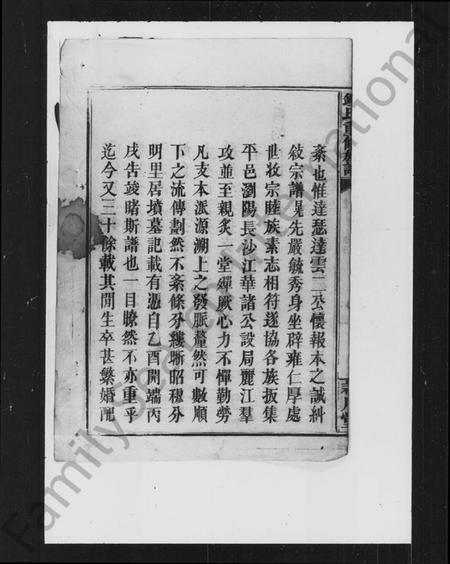 紊也惟達瑟達雲二公懷報本之誠糾
敍宗譜晃先嚴毓秀身坐辟雍仁厚處
世妆宗睦族素志相符遂協各族扳集
平邑瀏陽長沙江華諸公設局麗江羣
攻並至親炙一堂殫厥心力不憚勤勞
凡支本派源溯上之發脈釐然可數順
下之流傳劃然不紊條分縷晰昭穆分
明里居墳墓記載有憑自乙酉開端丙
戌告竣賭斯譜也一目瞭然不亦重乎
迄今又三十餘載其閒生卒甚繁婚配
鍾氏重修族譜
堂
Family Search International